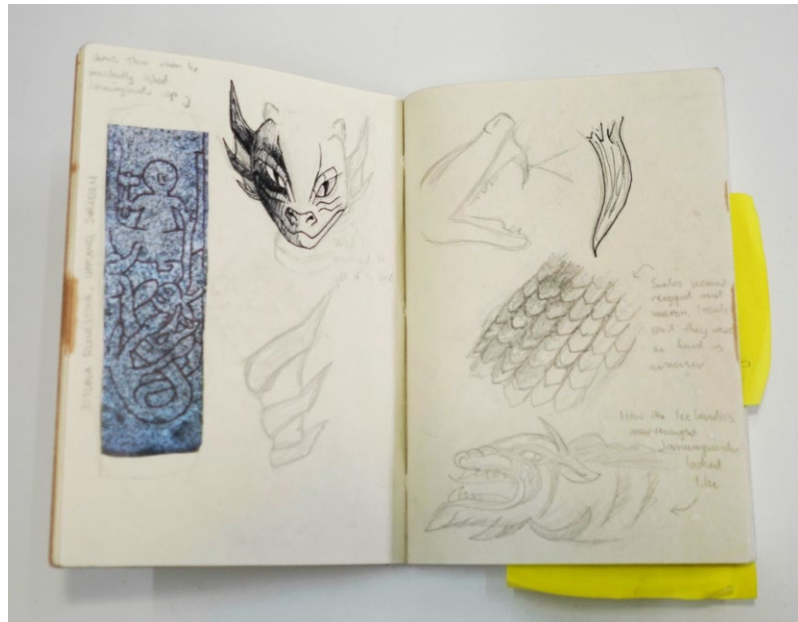 shows Thor when he
accidently fished
Jormungandr up
ALTUNA RUNESTONE, UPPLAND, SWEDEN
Scales seemed
rugged and
uneven, locals
said they were
as hard as
How the Icelandics
once thought
Jormungandr
looked
like